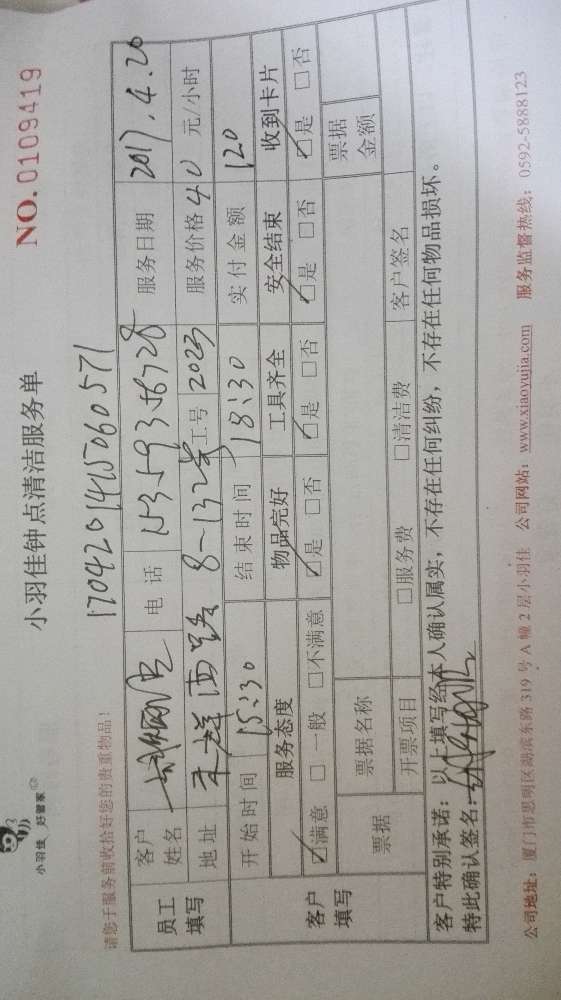 小羽佳 好管家
小羽佳钟点清洁服务单
NO.0109419
请您于服务前收拾好您的贵重物品!
1704201415060571
员工填写
客户姓名
电话 15359356728
服务日期 2017.4.20
地址 8-132号
工号 2023
服务价格 40 元/小时
开始时间 15:30
结束时间 18:30
实付金额 120
客户填写
服务态度 物品完好 工具齐全 安全结束 收到卡片
☑满意 □一般 □不满意 ☑是 □否 ☑是 □否 ☑是 □否 ☑是 □否
票据
票据名称
票据金额
开票项目 □服务费 □清洁费 客户签名
客户特别承诺:以上填写经本人确认属实,不存在任何纠纷,不存在任何物品损坏。
特此确认签名:
公司地址:厦门市思明区湖滨东路319号A幢2层小羽佳 公司网站:www.xiaoyujia.com 服务监督热线:0592-5888123